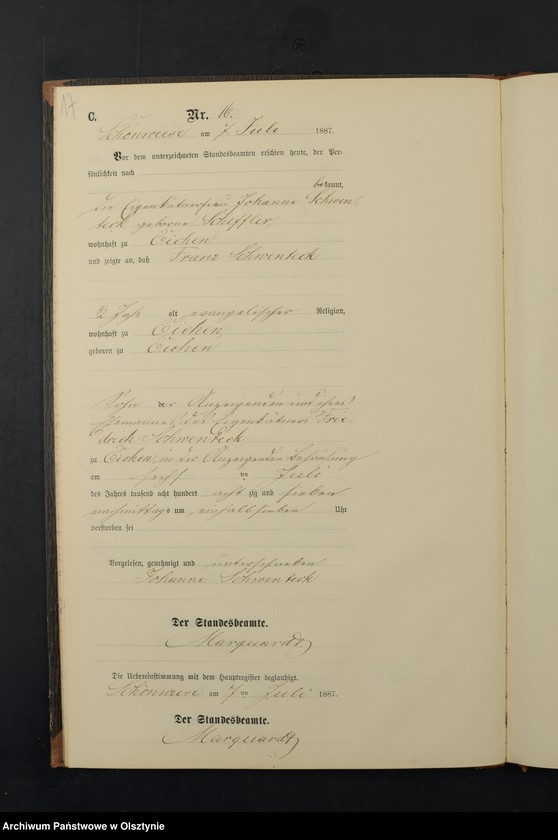 17
C.
Nr. 16.
Schönwiese am 7 Juli 1887.
Vor dem unterzeichneten Standesbeamten erschien heute, der Per-
sönlichkeit nach
bekannt,
die Eigenkäthnerfrau Johanne Schwen-
teck geborne Scheffler,
wohnhaft zu Eichen
und zeigte an, daß Franz Schwenteck
alt evangelischer Religion,
wohnhaft zu Eichen,
geboren zu Eichen
Sohn der Anzeigenden und ihres
Ehemannes des Eigenkäthners Frie-
drich Schwenteck
zu Eichen, in der Anzeigenden Behausung
am sechsten Juli
des Jahres tausend acht hundert achtzig und sieben
nachmittags um einhalb sieben Uhr
verstorben sei
Vorgelesen, genehmigt und unterschrieben
Johanne Schwenteck
Der Standesbeamte.
Marquardt
Die Uebereinstimmung mit dem Hauptregister beglaubigt.
Schönwiese am 7ten Juli 1887.
Der Standesbeamte.
Marquardt
Archiwum Państwowe w Olsztynie